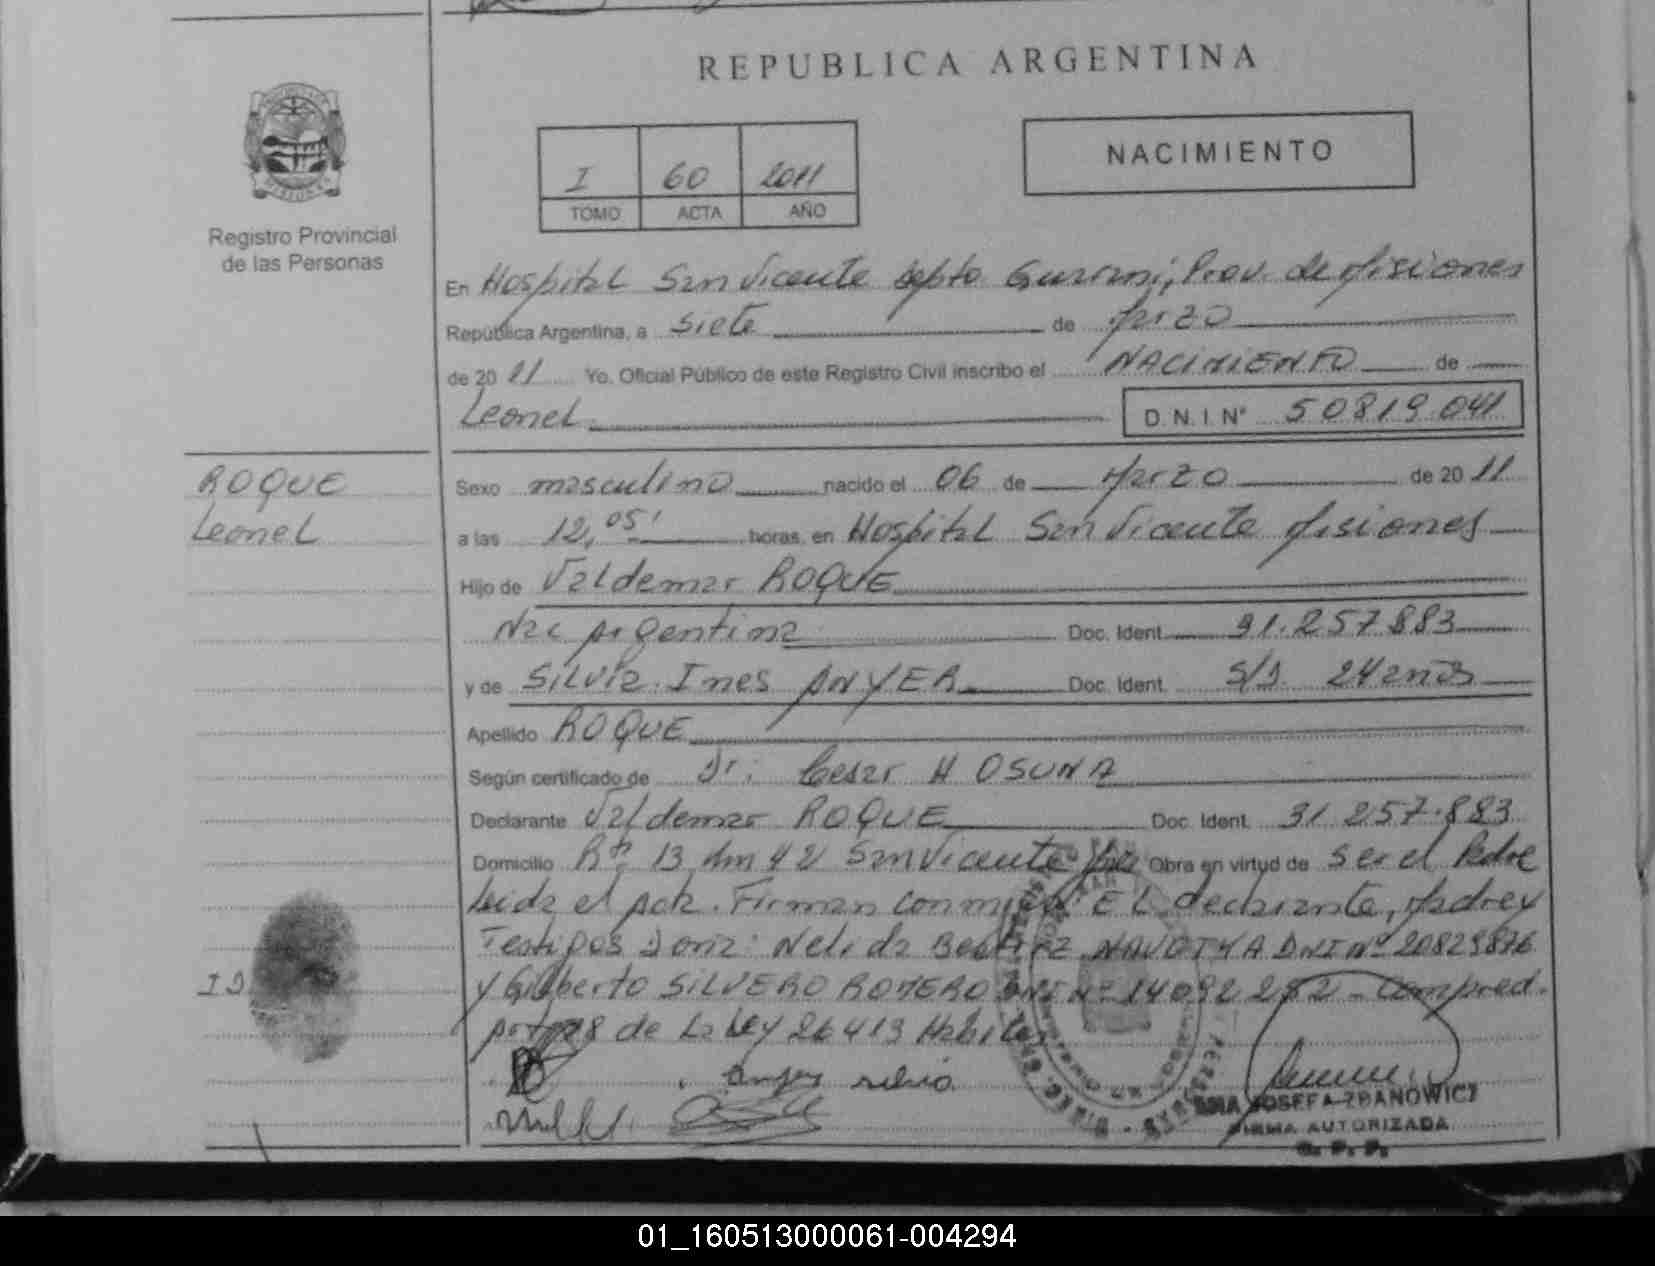 REPUBLICA ARGENTINA
NACIMIENTO
I 60 2011
TOMO ACTA AÑO
Registro Provincial
de las Personas
En Hospital San Vicente Depto Guarani, Prov. de Misiones
República Argentina, a siete de Marzo
de 20 11 Yo, Oficial Público de este Registro Civil inscribo el NACIMIENTO de
Leonel D.N.I. Nº 50819.041
ROQUE
Leonel
Sexo masculino nacido el 06 de Marzo de 20 11
a las 12,05' horas, en Hospital San Vicente Misiones
Hijo de Valdemar ROQUE
Nac Argentina Doc. Ident. 31.257.883
y de Silvia Ines ANYER Doc. Ident. S/D. 24 años
Apellido ROQUE
Según certificado de Dr. Cesar H OSUNA
Declarante Valdemar ROQUE Doc. Ident. 31.257.883
Domicilio Rta 13 Km 42 San Vicente Obra en virtud de ser el Padre
Leida el Acta. Firman conmigo EL declarante, Madre y
Testigos Nelida Beatriz DNI Nº 20829876
y Gilberto SILVERO ROMERO DNI Nº 14092282
de La Ley 26413
ID
silvia
JOSEFA ZDANOWICZ
FIRMA AUTORIZADA
R. P. P.
01_160513000061-004294